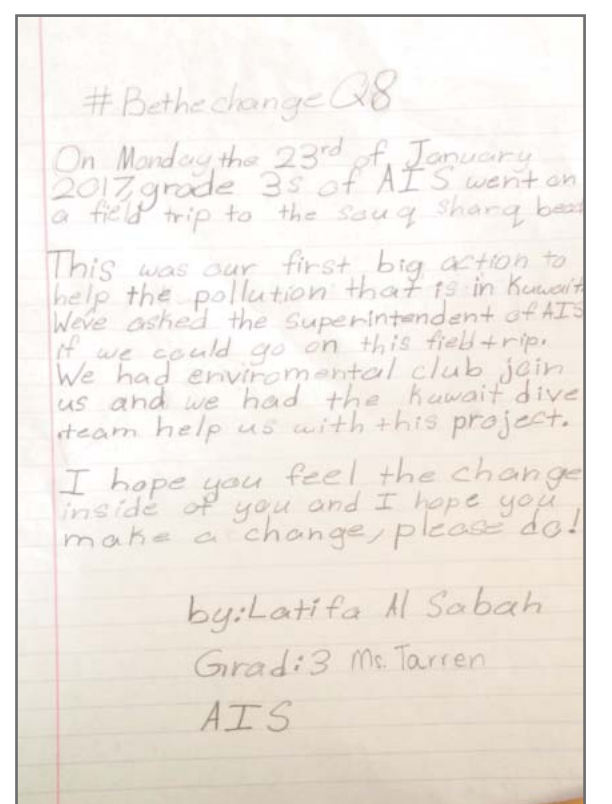 #BethechangeQ8
On Monday the 23rd of January
2017, grade 3s of AIS went on
a field trip to the souq Sharq beac
This was our first big action to
help the pollution that is in Kuwait
Weve asked the superintendent of AIS
if we could go on this field trip.
We had enviromental club join
us and we had the Kuwait dive
team help us with this project.
I hope you feel the change
inside of you and I hope you
make a change, please do!
by:Latifa Al Sabah
Grad:3 Ms. Tarren
AIS